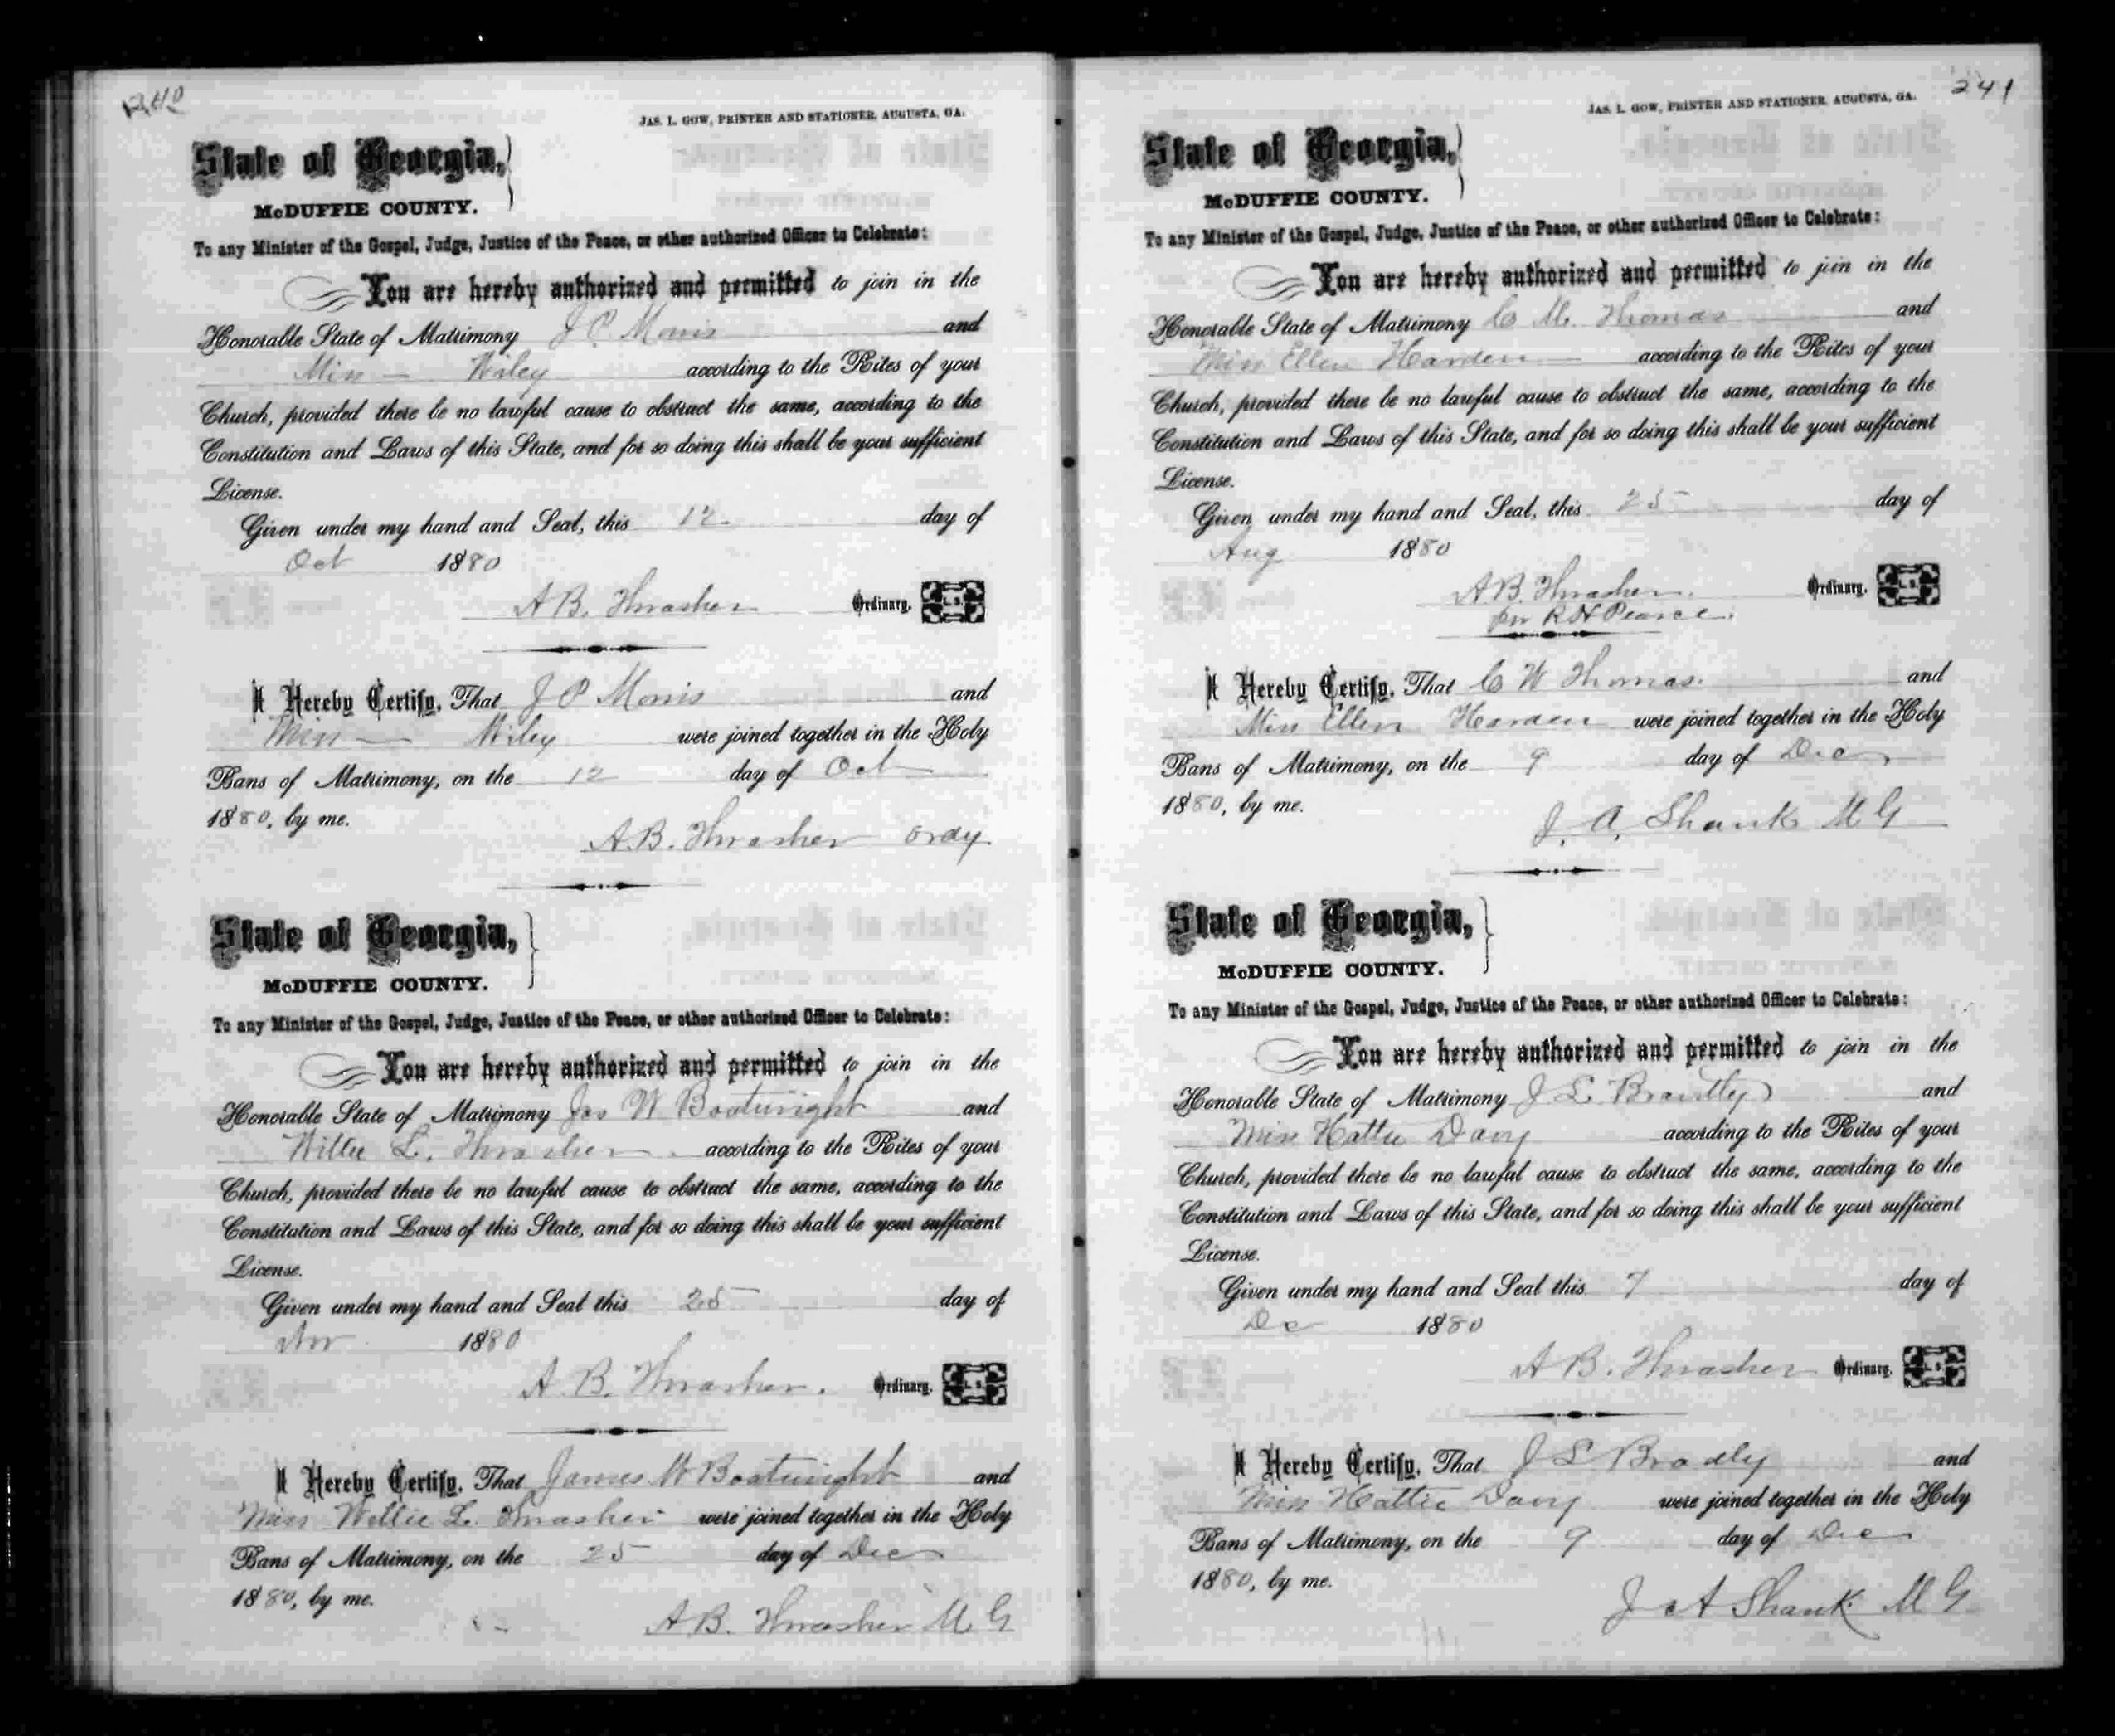 240
JAS. L. GOW, PRINTER AND STATIONER, AUGUSTA, GA.
State of Georgia,
McDUFFIE COUNTY.
To any Minister of the Gospel, Judge, Justice of the Peace, or other authorized Officer to Celebrate:
You are hereby authorized and permitted to join in the
Honorable State of Matrimony J P Morris and
Miss — Wiley according to the Rites of your
Church, provided there be no lawful cause to obstruct the same, according to the
Constitution and Laws of this State, and for so doing this shall be your sufficient
License.
Given under my hand and Seal, this 12 day of
Oct 1880
A B. Thrasher Ordinary. L. S.
I Hereby Certify, That J P Morris and
Miss — Wiley were joined together in the Holy
Bans of Matrimony, on the 12 day of Oct
1880, by me.
A.B. Thrasher Ordy
State of Georgia,
McDUFFIE COUNTY.
To any Minister of the Gospel, Judge, Justice of the Peace, or other authorized Officer to Celebrate:
You are hereby authorized and permitted to join in the
Honorable State of Matrimony Jas W Boatwright and
Willie L. Thrasher according to the Rites of your
Church, provided there be no lawful cause to obstruct the same, according to the
Constitution and Laws of this State, and for so doing this shall be your sufficient
License.
Given under my hand and Seal this 25 day of
1880
A. B. Thrasher. Ordinary. L. S.
I Hereby Certify, That James W Boatwright and
Miss Willie L. Thrasher were joined together in the Holy
Bans of Matrimony, on the 25 day of Dec
1880, by me.
A B. Thrasher M. G
241
JAS. L. GOW, PRINTER AND STATIONER, AUGUSTA, GA.
State of Georgia,
McDUFFIE COUNTY.
To any Minister of the Gospel, Judge, Justice of the Peace, or other authorized Officer to Celebrate:
You are hereby authorized and permitted to join in the
Honorable State of Matrimony C M. Thomas and
Miss Ellen Harden according to the Rites of your
Church, provided there be no lawful cause to obstruct the same, according to the
Constitution and Laws of this State, and for so doing this shall be your sufficient
License.
Given under my hand and Seal, this 25 day of
Aug 1880
A B. Thrasher. Ordinary. L. S.
per R H Pearce.
I Hereby Certify, That C W Thomas. and
Miss Ellen Harden were joined together in the Holy
Bans of Matrimony, on the 9 day of Dec
1880, by me.
J. A. Shank M G
State of Georgia,
McDUFFIE COUNTY.
To any Minister of the Gospel, Judge, Justice of the Peace, or other authorized Officer to Celebrate:
You are hereby authorized and permitted to join in the
Honorable State of Matrimony J L Brantly and
Miss Hattie Davy according to the Rites of your
Church, provided there be no lawful cause to obstruct the same, according to the
Constitution and Laws of this State, and for so doing this shall be your sufficient
License.
Given under my hand and Seal this 7 day of
De 1880
A B. Thrasher Ordinary. L. S.
I Hereby Certify, That J L Bradly and
Miss Hattie Davy were joined together in the Holy
Bans of Matrimony, on the 9 day of Dec
1880, by me.
J A Shank M G